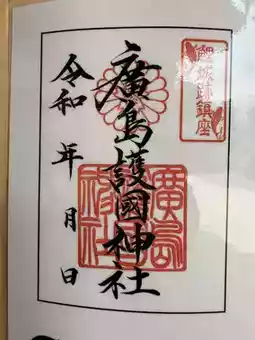 鯉城跡鎮座
廣島護國神社
令和 年 月 日
廣島護國神社